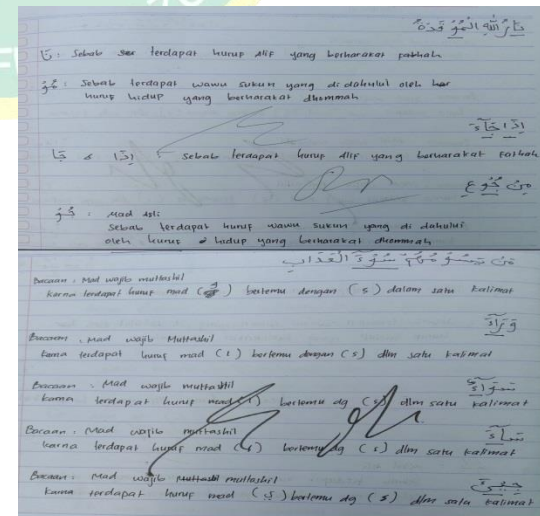 نَارُ اللّٰهِ الْمُوْ قَدَةُ
نَا : Sebab terdapat huruf Alif yang berharakat fathah
مُوْ : Sebab terdapat wawu sukun yang di dahului oleh
huruf hidup yang berharakat dhammah
اِذَا جَآءَ
جَا & اِذَا Sebab terdapat huruf Alif yang berharakat fathah
مِنْ جُوْ عٍ
جُوْ : Mad Asli
Sebab terdapat huruf wawu sukun yang di dahului
oleh huruf hidup yang berharakat dhammah
سُوْٓءَ الْعَذَابِ
Bacaan : Mad wajib muttashil
karna terdapat huruf mad (و) bertemu dengan (ء) dalam satu kalimat
وَرَآءَ
Bacaan : Mad wajib Muttashil
karna terdapat huruf mad (ا) bertemu dengan (ء) dlm satu kalimat
سَوَآءٌ
Bacaan : Mad wajib muttashil
karna terdapat huruf mad (ا) bertemu dg (ء) dlm satu kalimat
Bacaan : Mad wajib muttashil
karna terdapat huruf mad (ا) bertemu dg (ء) dlm satu kalimat
Bacaan : Mad wajib muttashil
karna terdapat huruf mad (ي) bertemu dg (ء) dlm satu kalimat